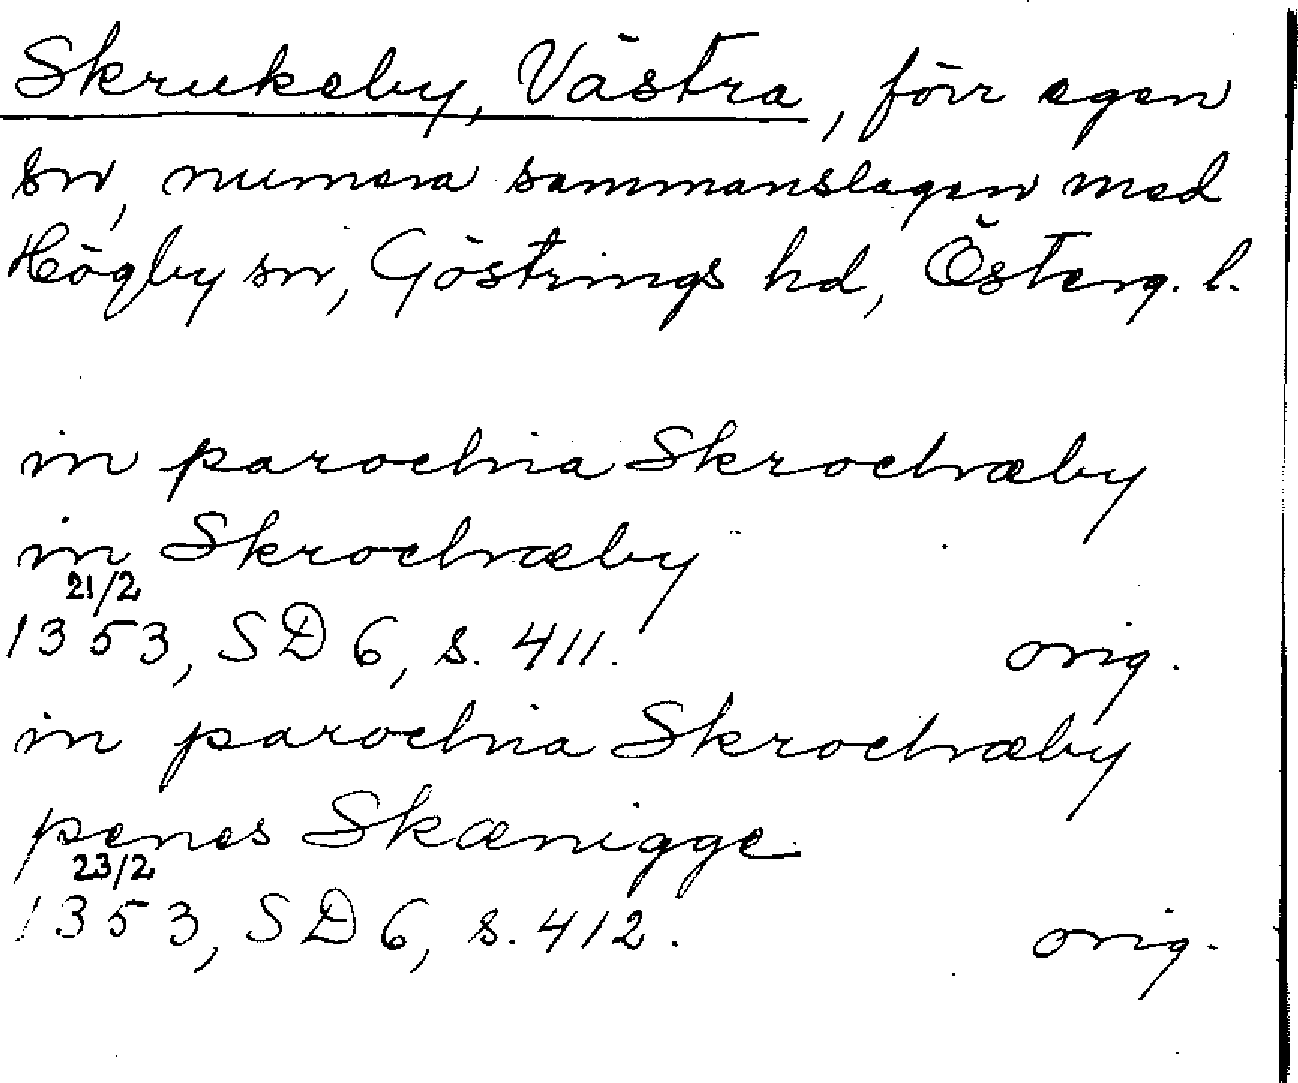 Skrukeby, Västra, förr egen
sn, numera sammanslagen med
Högby sn, Göstrings hd, Österg. l.
in parochia Skrochæby
in Skrochæby
21/2
1353, SD 6, s. 411. orig.
in parochia Skrochæby
penes Skænigge
23/2
1353, SD 6, s. 412. orig.